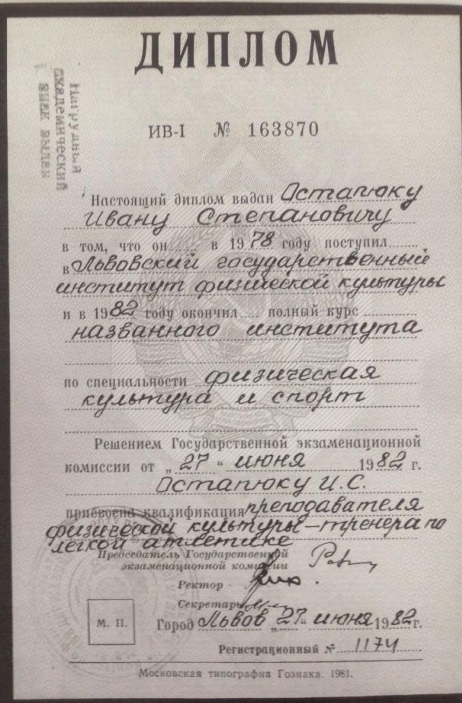 ДИПЛОМ
Нагрудный
академический
знак выдан
ИВ-I № 163870
Настоящий диплом выдан Остапюку
Ивану Степановичу
в том, что он в 1978 году поступил
в Львовский государственный
институт физической культуры
и в 1982 году окончил полный курс
названного института
по специальности физическая
культура и спорт
Решением Государственной экзаменационной
комиссии от „27“ июня 1982 г.
Остапюку И.С.
присвоена квалификация преподавателя
физической культуры – тренера по
легкой атлетике
Председатель Государственной
экзаменационной комиссии
Ректор
Секретарь
М. П.
Город Львов „27“ июня 1982 г.
Регистрационный № 1174
Московская типография Гознака. 1981.